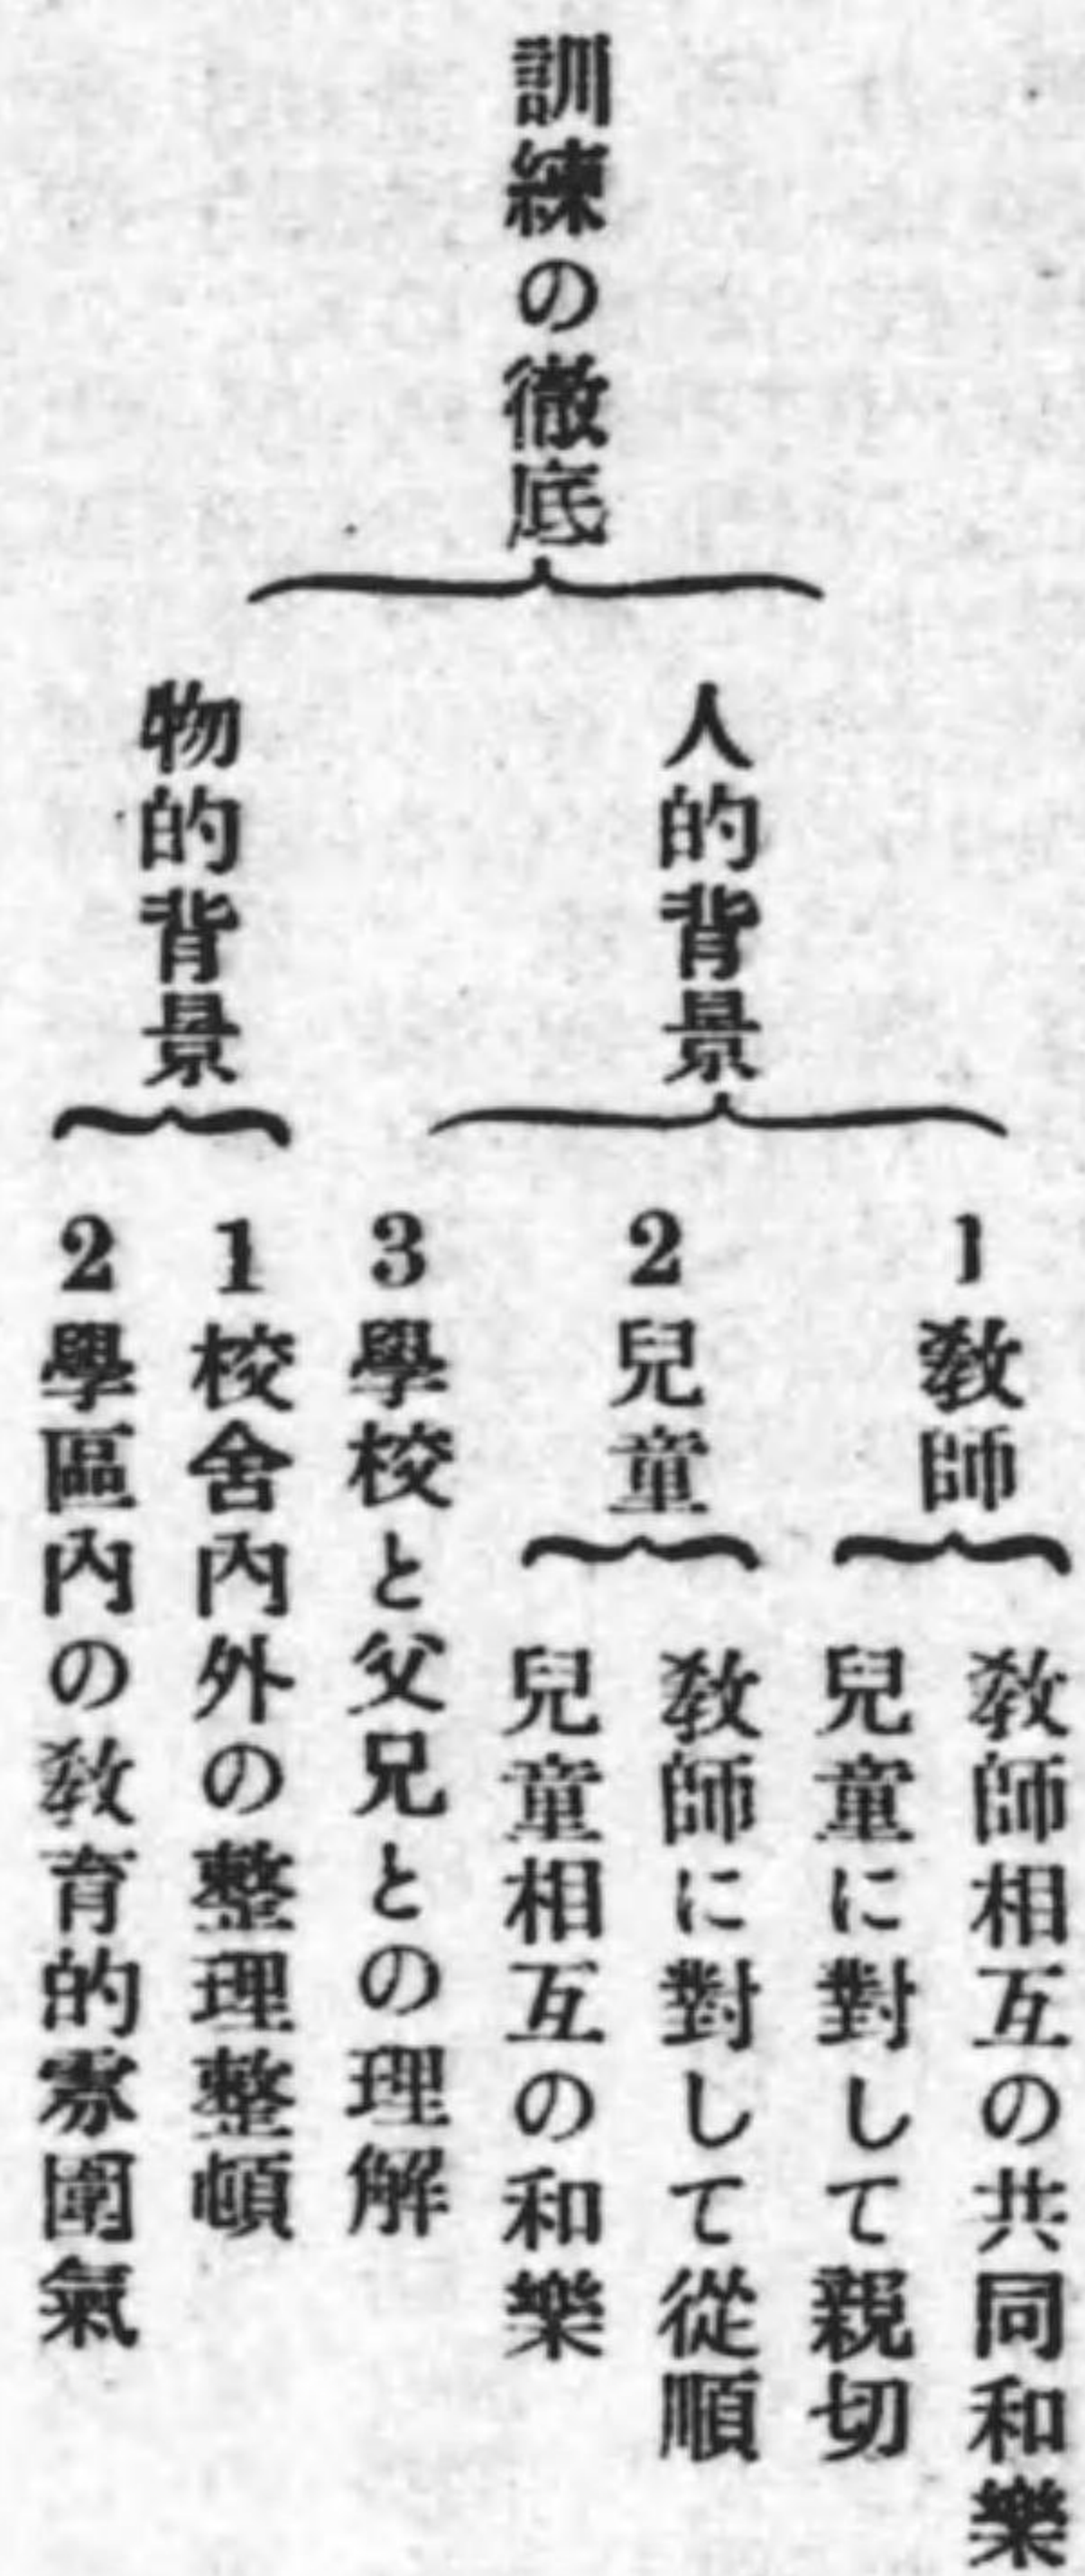 訓練の徹底
人的背景
1 敎師
敎師相互の共同和樂
兒童に對して親切
2 兒童
敎師に對して從順
兒童相互の和樂
3 學校と父兄との理解
物的背景
1 校舍內外の整理整頓
2 學區內の敎育的雰圍氣